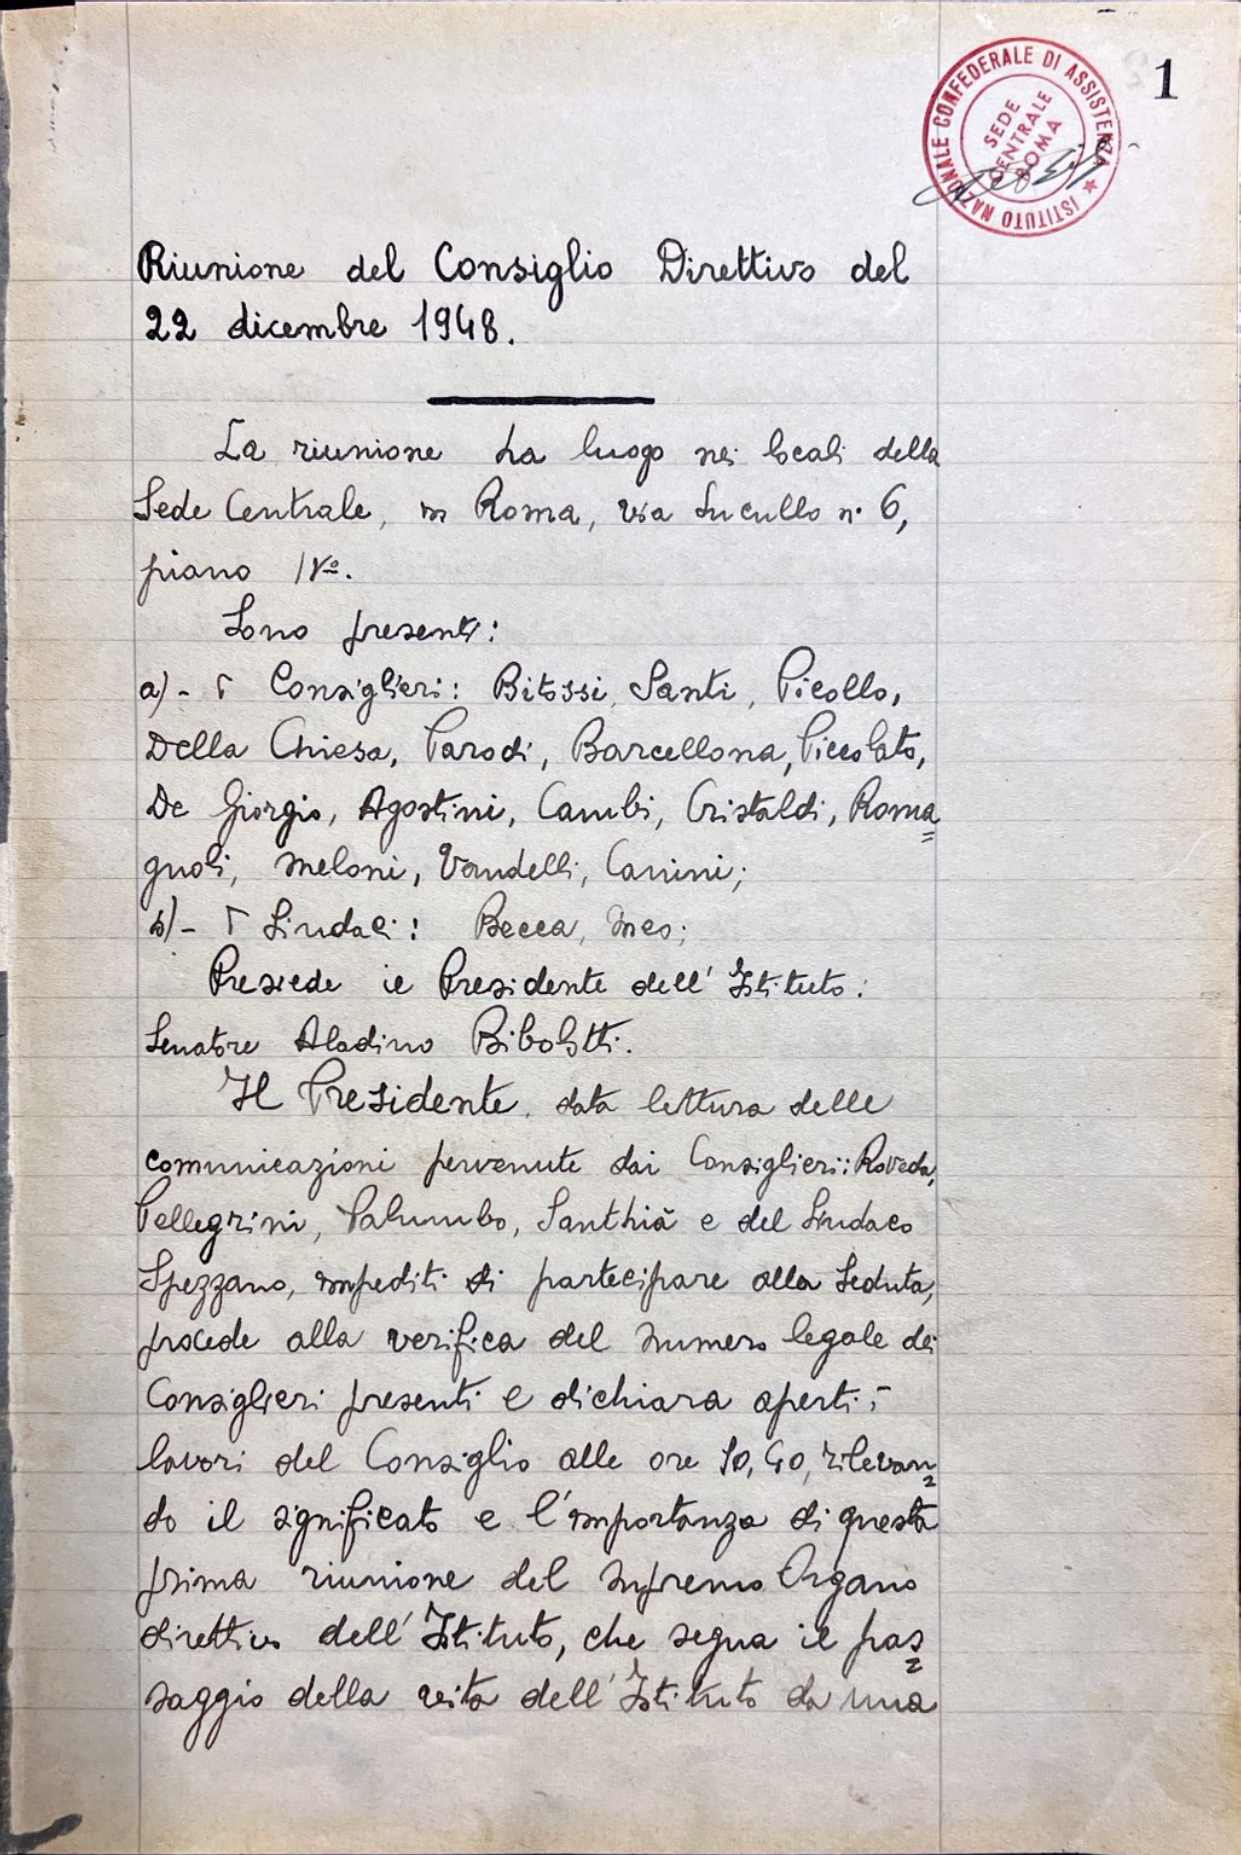 1
ISTITUTO NAZIONALE CONFEDERALE DI ASSISTENZA
SEDE
CENTRALE
ROMA
Riunione del Consiglio Direttivo del
22 dicembre 1948.
La riunione ha luogo nei locali della
Sede Centrale, in Roma, via Lucullo n. 6,
piano IVº.
Sono presenti:
a)- I Consiglieri: Bitossi, Santi, Picollo,
Della Chiesa, Parodi, Barcellona, Piccolato,
De Giorgio, Agostini, Cambi, Cristaldi, Roma=
gnoli, Meloni, Vandelli, Canini;
b)- I Sindaci: Becca, Meo;
Presiede il Presidente dell'Istituto:
Senatore Aladino Bibolotti.
Il Presidente, data lettura delle
comunicazioni pervenute dai Consiglieri: Roveda,
Pellegrini, Palumbo, Santhià e del Sindaco
Spezzano, impediti di partecipare alla seduta,
procede alla verifica del numero legale dei
Consiglieri presenti e dichiara aperti i
lavori del Consiglio alle ore 10,40, rilevan=
do il significato e l'importanza di questa
prima riunione del supremo Organo
direttivo dell'Istituto, che segna il pas=
saggio della vita dell'Istituto da una